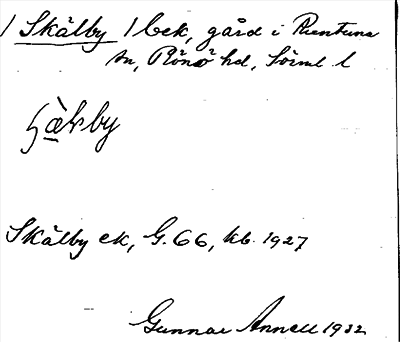 / Skälby / bek, gård i Runtuna
sn, Rönö hd, Sörml l
Skälby ek, G. 66, kb. 1927
Gunnar Annell 1932